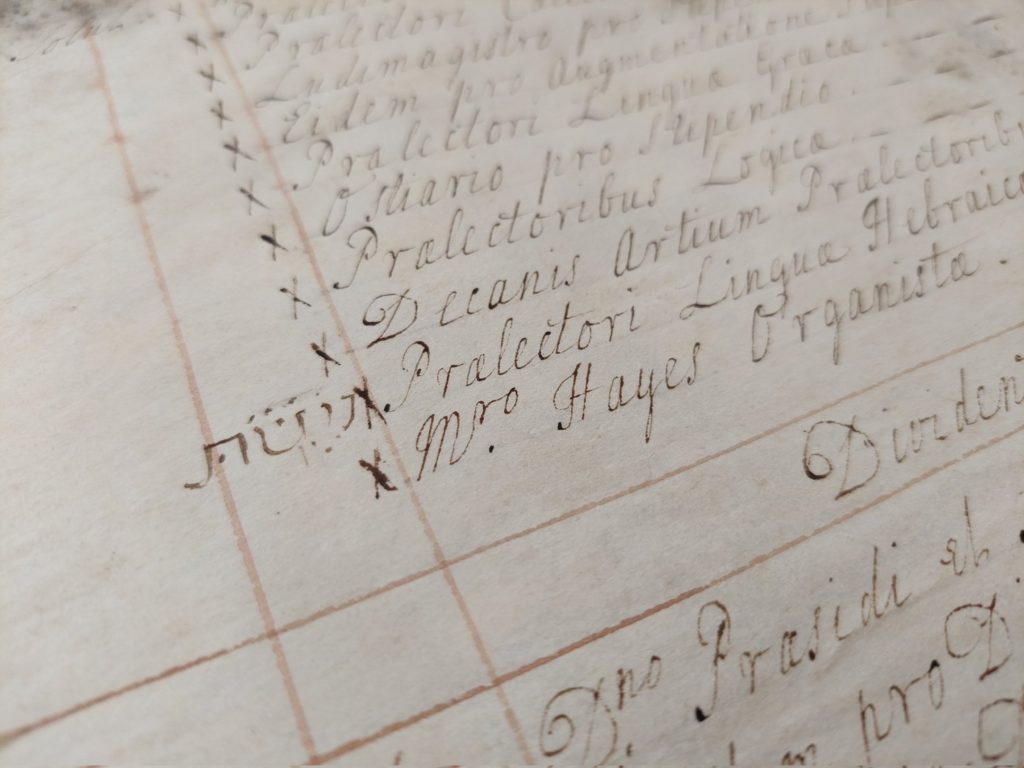 Prælectori
Ludimagistro pro
Eidem pro Augmentatione
Prælectori Lingua Græca
Ostiario pro Stipendio
Prælectoribus Logicæ
Decanis Artium Prælectoribu
Prælectori Lingua Hebraica
Mro. Hayes Organistæ
Dividen
Dno. Præsidi et
pro D